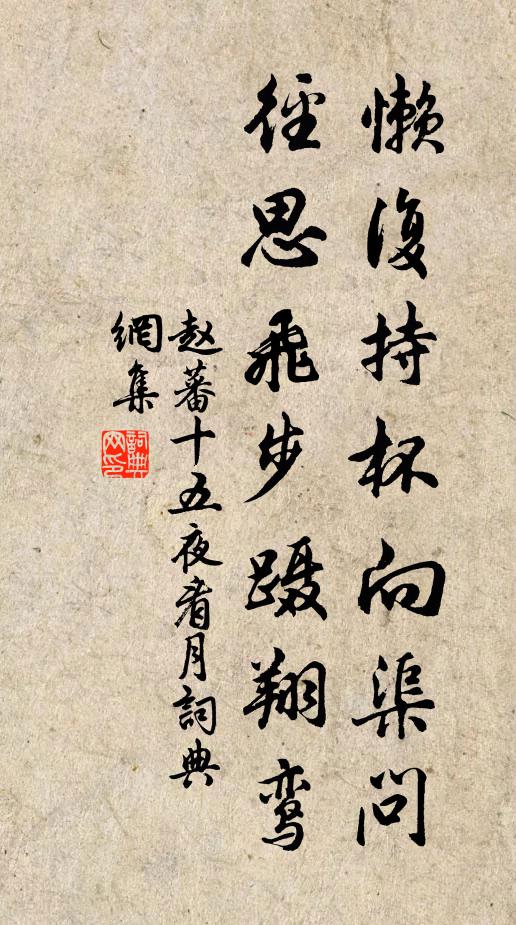 懒復持杯向渠问
径思飛步蹑翔鸾
赵蕃十五夜看月詞典
網集
詞典网印